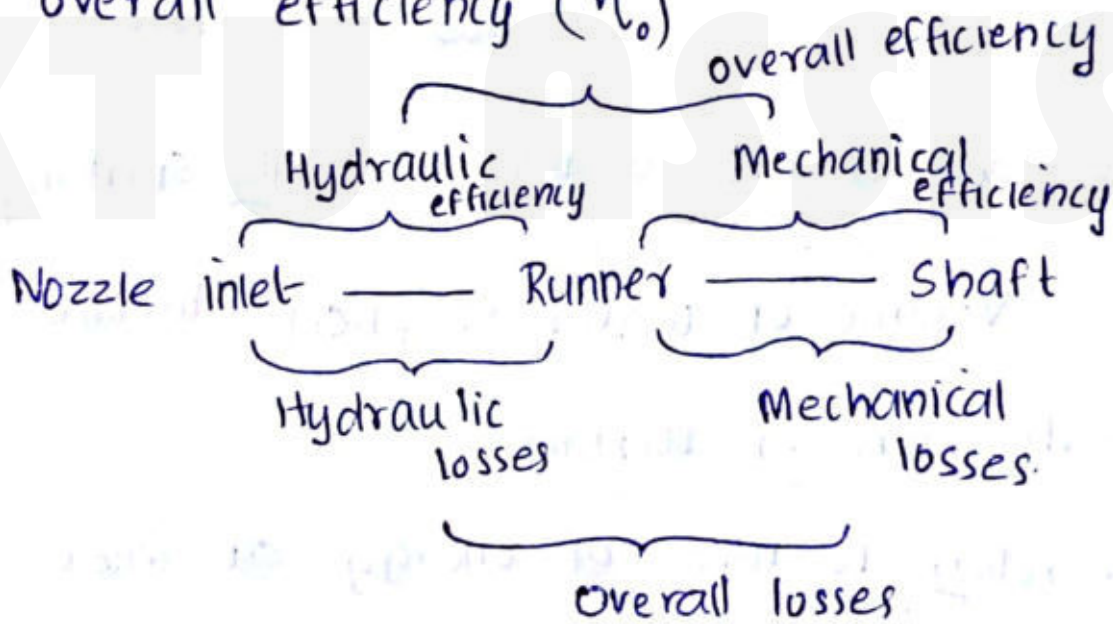 overall efficiency (η₀)
overall efficiency
Hydraulic efficiency
Mechanical efficiency
Nozzle inlet — Runner — Shaft
Hydraulic losses
Mechanical losses.
Overall losses
KTU ASSIS